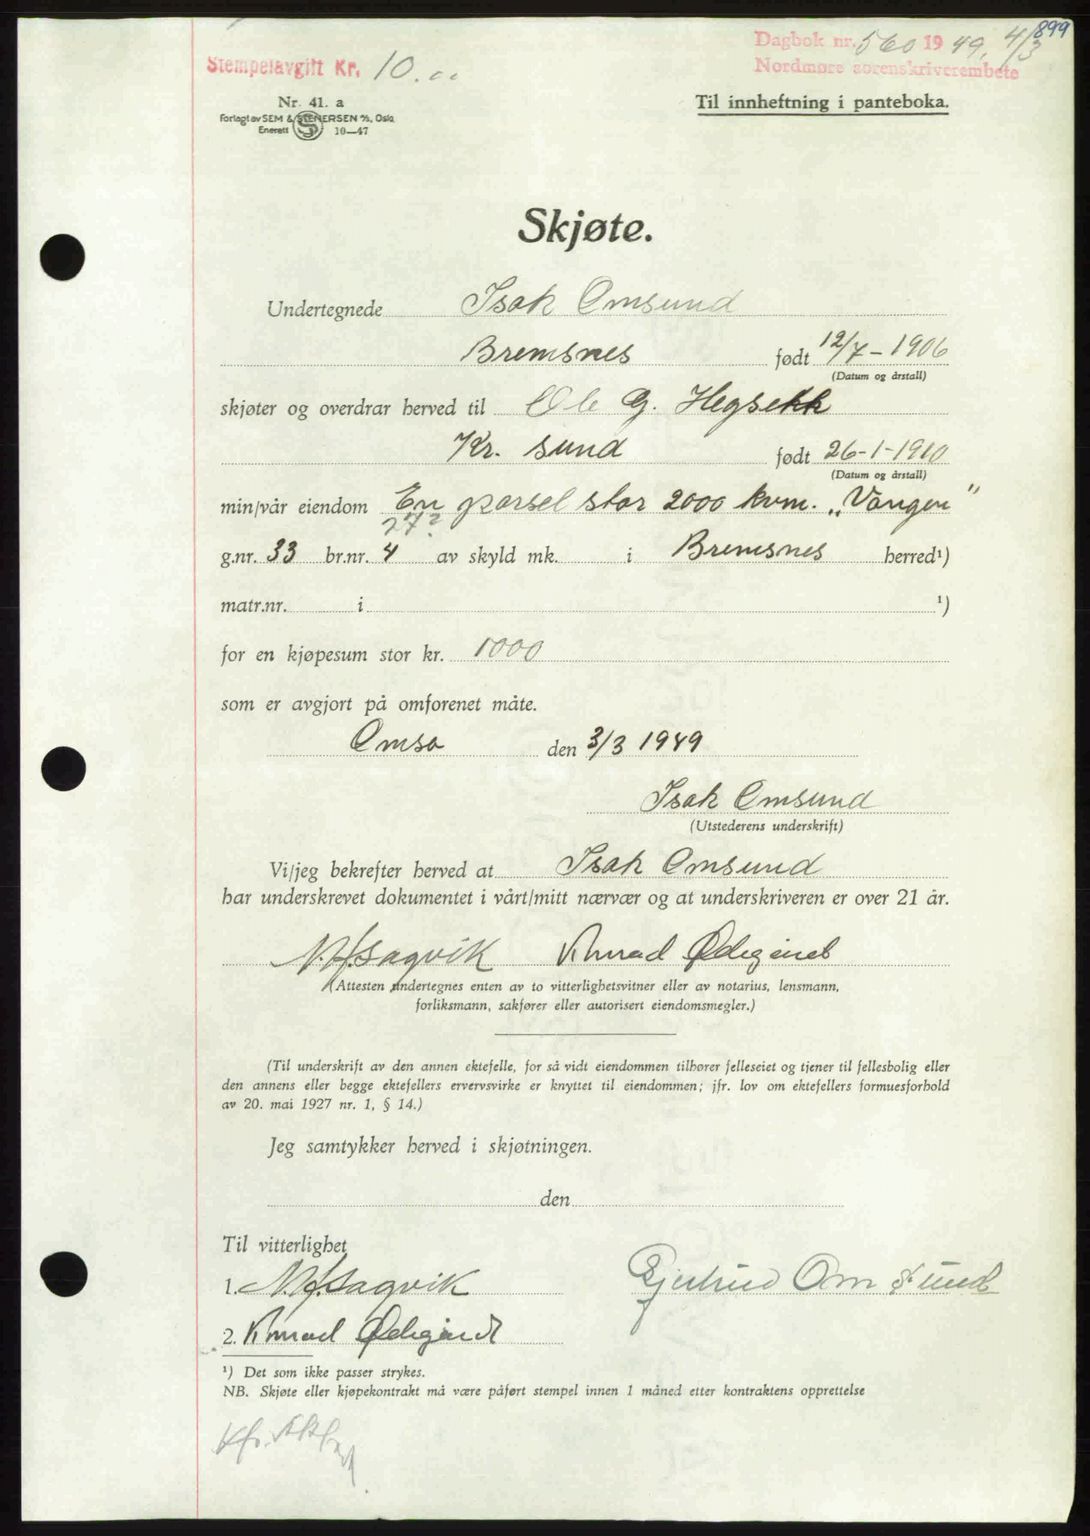 899
Dagbok nr. 560 1949, 4/3
Nordmøre sorenskriverembete
Stempelavgift Kr. 10.00
Nr. 41. a
Forlagt av SEM & STENERSEN A/S, Oslo
Enerett S 10—47
Til innheftning i panteboka.
Skjøte.
Undertegnede Isak Omsund
Bremsnes født 12/7-1906
(Datum og årstall)
skjøter og overdrar herved til Ole G. Hegsekk
Kr. sund født 26-1-1910
(Datum og årstall)
min/vår eiendom En parsel stor 2000 kvm. „Vangen”
272
g.nr. 33 br.nr. 4 av skyld mk. i Bremsnes herred¹)
matr.nr. i ¹)
for en kjøpesum stor kr. 1000
som er avgjort på omforenet måte.
Omsa den 3/3 1949
Isak Omsund
(Utstederens underskrift)
Vi/jeg bekrefter herved at Isak Omsund
har underskrevet dokumentet i vårt/mitt nærvær og at underskriveren er over 21 år.
N. H. Sagvik Konrad Ødegård
(Attesten undertegnes enten av to vitterlighetsvitner eller av notarius, lensmann,
forliksmann, sakfører eller autorisert eiendomsmegler.)
(Til underskrift av den annen ektefelle, for så vidt eiendommen tilhører felleseiet og tjener til fellesbolig eller
den annens eller begge ektefellers ervervsvirke er knyttet til eiendommen; jfr. lov om ektefellers formuesforhold
av 20. mai 1927 nr. 1, § 14.)
Jeg samtykker herved i skjøtningen.
den
Til vitterlighet
1. N. H. Sagvik Gjertrud Omsund
2. Konrad Ødegård
¹) Det som ikke passer strykes.
NB. Skjøte eller kjøpekontrakt må være påført stempel innen 1 måned etter kontraktens opprettelse